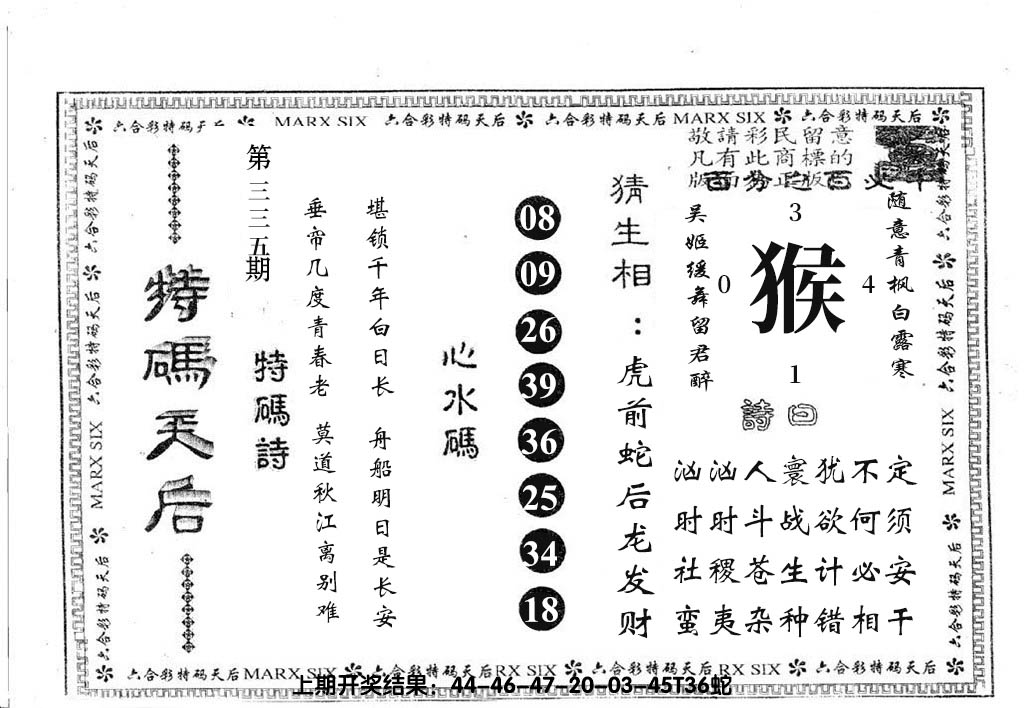 六合彩特码天后 MARX SIX 六合彩特码天后 六合彩特码天后 MARX SIX 六合彩特码天后
敬請彩民留意
凡有此商標的
版面为正版
特碼天后
第三三五期
特碼詩
垂帘几度青春老 莫道秋江离别难
堪锁千年白日长 舟船明日是长安
心水碼
08
09
26
39
36
25
34
18
猜生相：虎前蛇后龙发财
吴姬缓舞留君醉
随意青枫白露寒
3
0
猴
4
1
詩曰
汹汹人寰犹不定
时时斗战欲何须
社稷苍生计必安
蛮夷杂种错相干
六合彩特码天后 MARX SIX 六合彩特码天后
六合彩特码天后 六合彩特码天后 MARX SIX 六合彩特码天后
六合彩特码天后MARX SIX 六合彩特码天后RX SIX 六合彩特码天后RX SIX 六合彩特码天后
上期开奖结果：44-46-47-20-03-45T36蛇